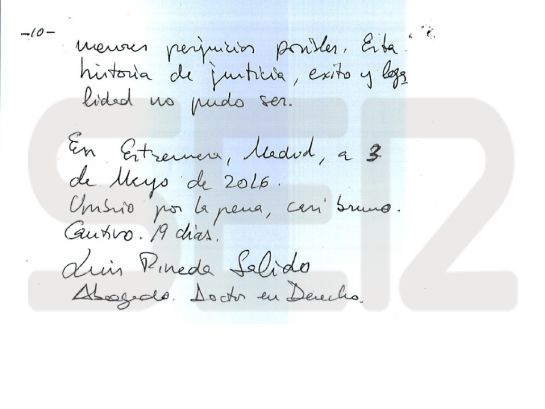 -10-
menores perjuicios posibles. Esta
historia de justicia, exito y lega
lidad no pudo ser.
En Estremera, Madrid, a 3
de Mayo de 2016.
Umbrio por la pena, casi bruno.
Cautivo. 19 dias.
Luis Pineda Salido
Abogado. Doctor en Derecho.
SER